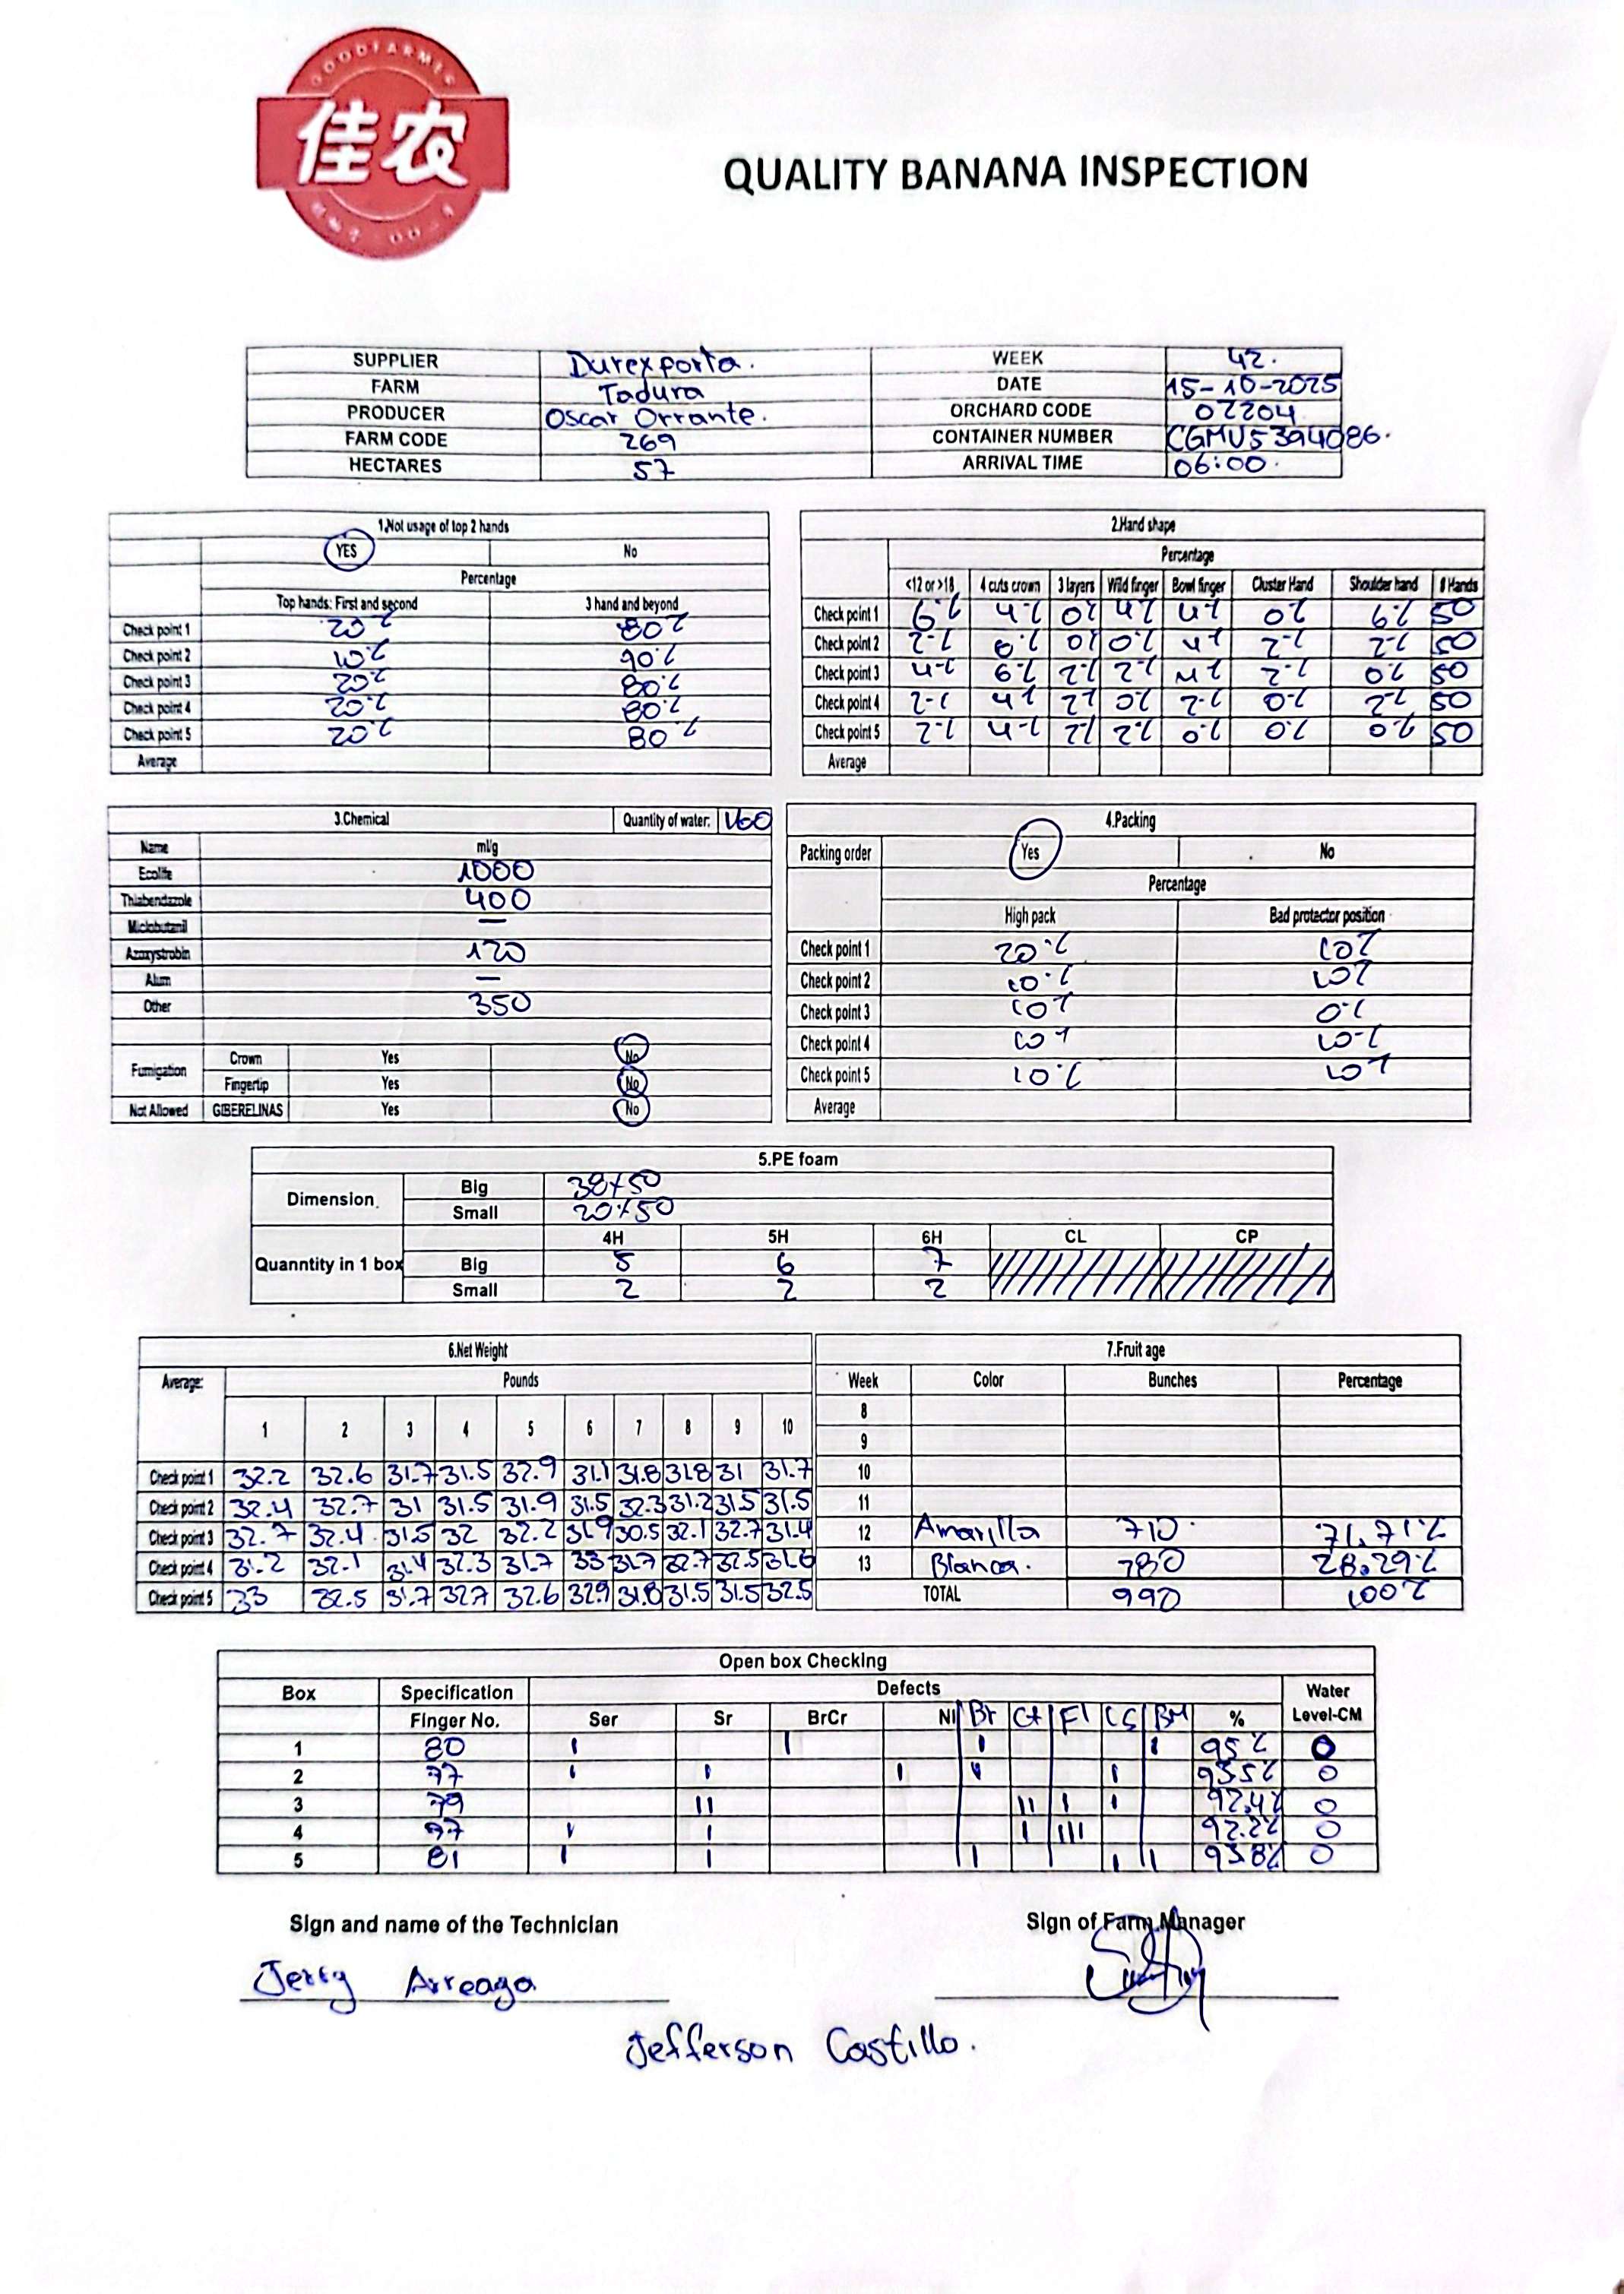 GOODFARMER
佳农
QUALITY BANANA INSPECTION
SUPPLIER Durexporta. WEEK 42.
FARM Tadura DATE 15-10-2025
PRODUCER Oscar Orrante. ORCHARD CODE 02204
FARM CODE 269 CONTAINER NUMBER CGMU5394086.
HECTARES 57 ARRIVAL TIME 06:00.
1.Not usage of top 2 hands
YES No
Percentage
Top hands: First and second 3 hand and beyond
Check point 1 20% 80%
Check point 2 10% 90%
Check point 3 20% 80%
Check point 4 20% 80%
Check point 5 20% 80%
Average
2.Hand shape
Percentage
<12 or >18 4 cuts crown 3 layers Wild finger Bowl finger Cluster Hand Shoulder hand # Hands
Check point 1 6% 4% 0% 4% 4% 0% 6% 50
Check point 2 2% 0% 0% 0% 4% 2% 2% 50
Check point 3 4% 6% 2% 2% 4% 2% 0% 50
Check point 4 2% 4% 2% 0% 2% 0% 2% 50
Check point 5 2% 4% 2% 2% 0% 0% 0% 50
Average
3.Chemical Quantity of water: 160
Name ml/g
Ecolife 1000
Thiabendazole 400
Miclobutanil —
Azoxystrobin 120
Alum —
Other 350
Fumigation Crown Yes No
Fingertip Yes No
Not Allowed GIBERELINAS Yes No
4.Packing
Packing order Yes No
Percentage
High pack Bad protector position
Check point 1 20% 10%
Check point 2 10% 10%
Check point 3 10% 0%
Check point 4 10% 10%
Check point 5 10% 10%
Average
5.PE foam
Dimension Big 38x50
Small 20x50
4H 5H 6H CL CP
Quanntity in 1 box Big 5 6 7
Small 2 2 2
6.Net Weight
Average: Pounds
1 2 3 4 5 6 7 8 9 10
Check point 1 32.2 32.6 31.7 31.5 32.9 31.1 31.8 31.8 31 31.7
Check point 2 32.4 32.7 31 31.5 31.9 31.5 32.3 31.2 31.5 31.5
Check point 3 32.7 32.4 31.5 32 32.2 31.9 30.5 32.1 32.7 31.4
Check point 4 31.2 32.1 31.4 32.3 31.7 33 31.7 32.7 32.5 31.6
Check point 5 33 32.5 31.7 32.7 32.6 32.9 31.8 31.5 31.5 32.5
7.Fruit age
Week Color Bunches Percentage
8
9
10
11
12 Amarilla 710 71,71%
13 Blanca. 280 28.29%
TOTAL 990 100%
Open box Checking
Box Specification Defects Water
Finger No. Ser Sr BrCr NI Br Ct Fl CS BM % Level-CM
1 80 I I I I 95% 0
2 77 I I I I I 93.5% 0
3 79 II II I I 92.4% 0
4 77 I I I III 92.2% 0
5 81 I I I I I 93.8% 0
Sign and name of the Technician Sign of Farm Manager
Jerry Arreaga
Jefferson Castillo.